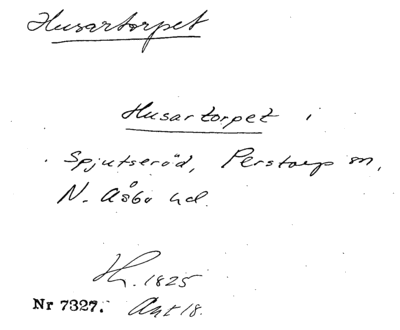 Husartorpet
Husartorpet i
Spjutseröd, Perstorp sn,
N. Åsbo hd.
1825
Nr 7327. Ant 18.